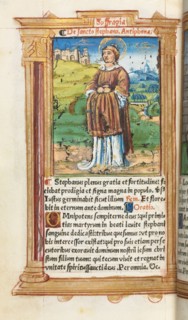 De sancto stephano. Antiphona.
Stephanus plenus gratia et fortitudine fa
ciebat prodigia et signa magna in populo.
Justus germinabit sicut lilium. Et flore
bit in eternum ante dominum. Oratio.
Omnipotens sempiterne deus qui primi
tias martyrum in beati levite stephani
sanguine dedicasti: tribue quesumus ut pro no
bis intercessor existat qui pro suis etiam perse
cutoribus exoravit dominum nostrum iesum chri
stum filium tuum: qui tecum vivit et regnat in
unitate spiritussancti deus. Per omnia. Oc.